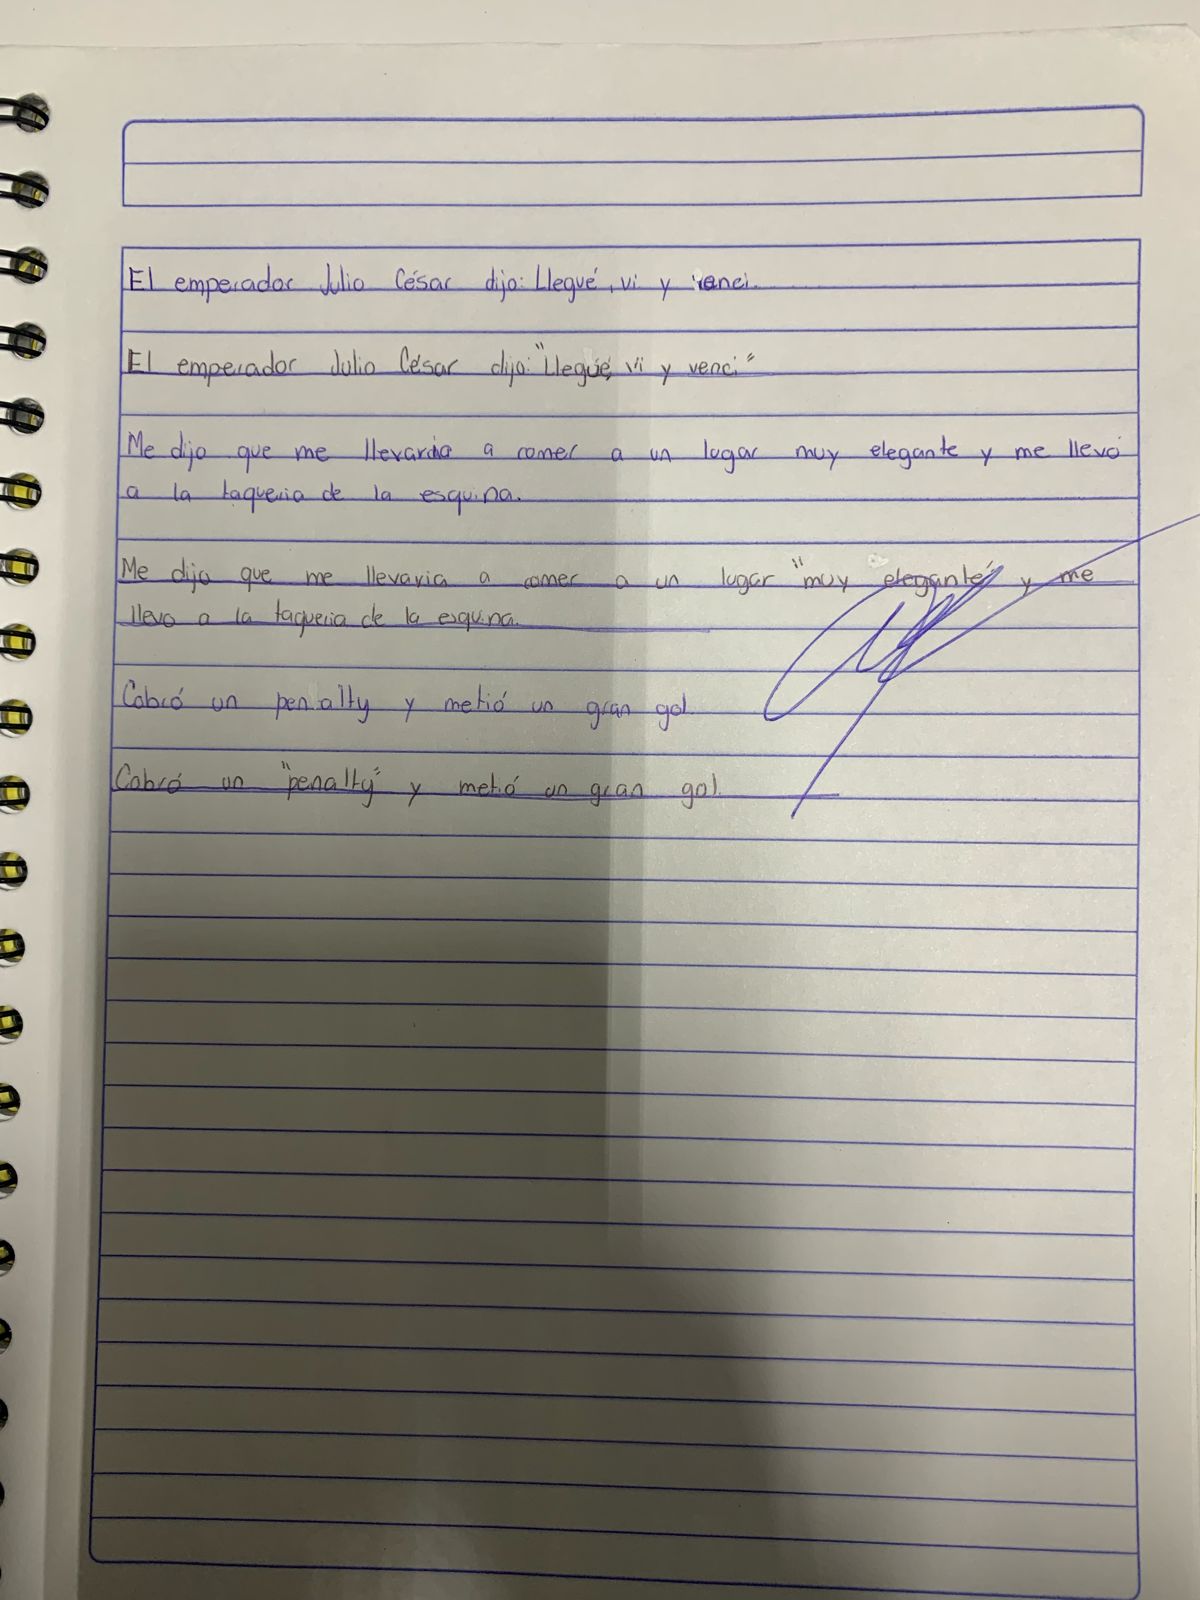 El emperador Julio César dijo: Llegué, vi y venci.
El emperador Julio César dijo: "Llegué, vi y venci"
Me dijo que me llevaria a comer a un lugar muy elegante y me llevó
a la taqueria de la esquina.
Me dijo que me llevaria a comer a un lugar "muy elegante" y me
llevo a la taqueria de la esquina.
Cobró un penalty y metió un gran gol.
Cobró un "penalty" y metió un gran gol.